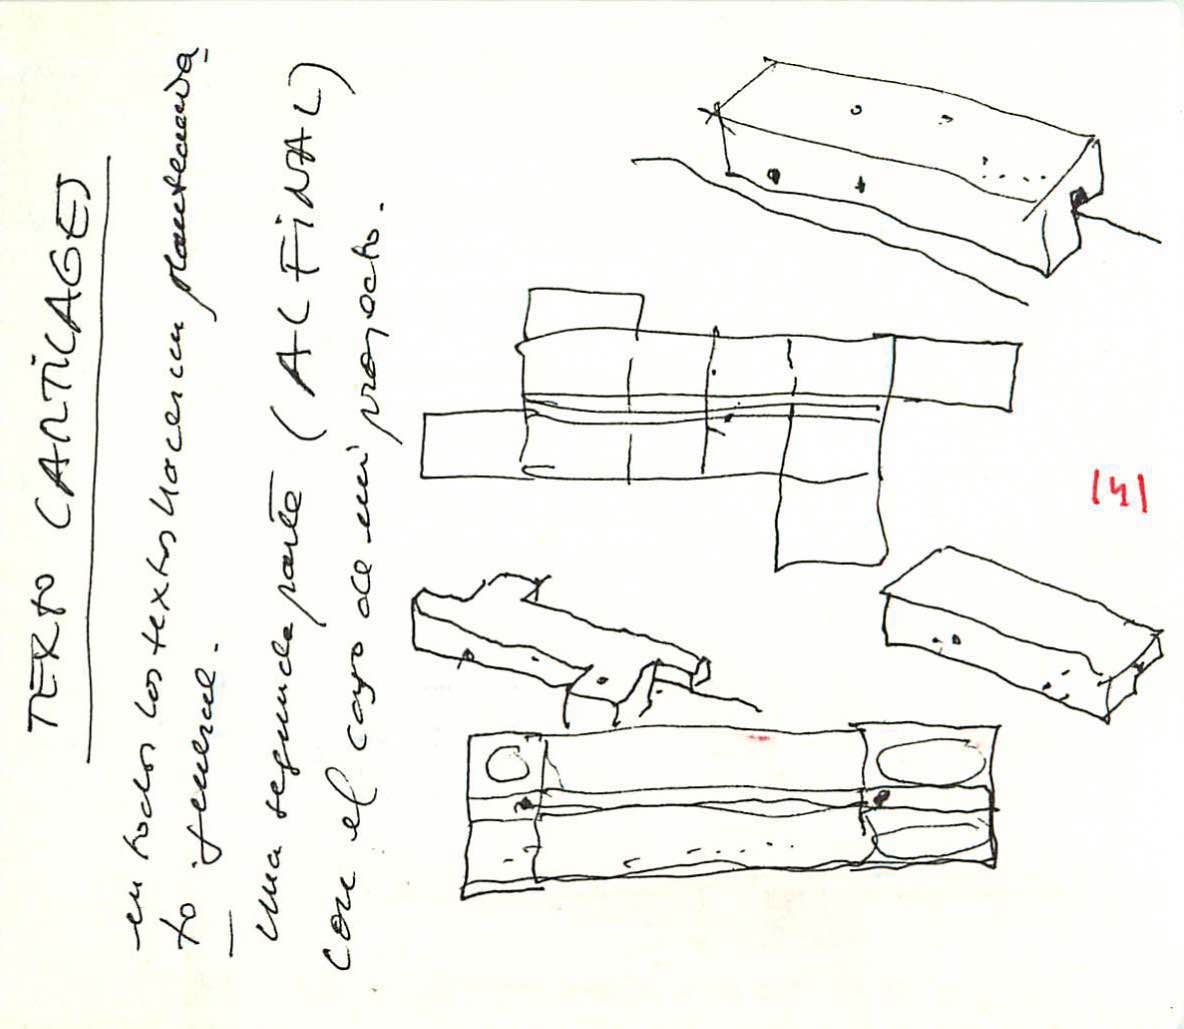 TEXTO CARTILAGES
- en todos los textos hacer un planteamien-
to general.
— una segunda parte (AL FINAL)
con el caso de mi proyecto.
|4|